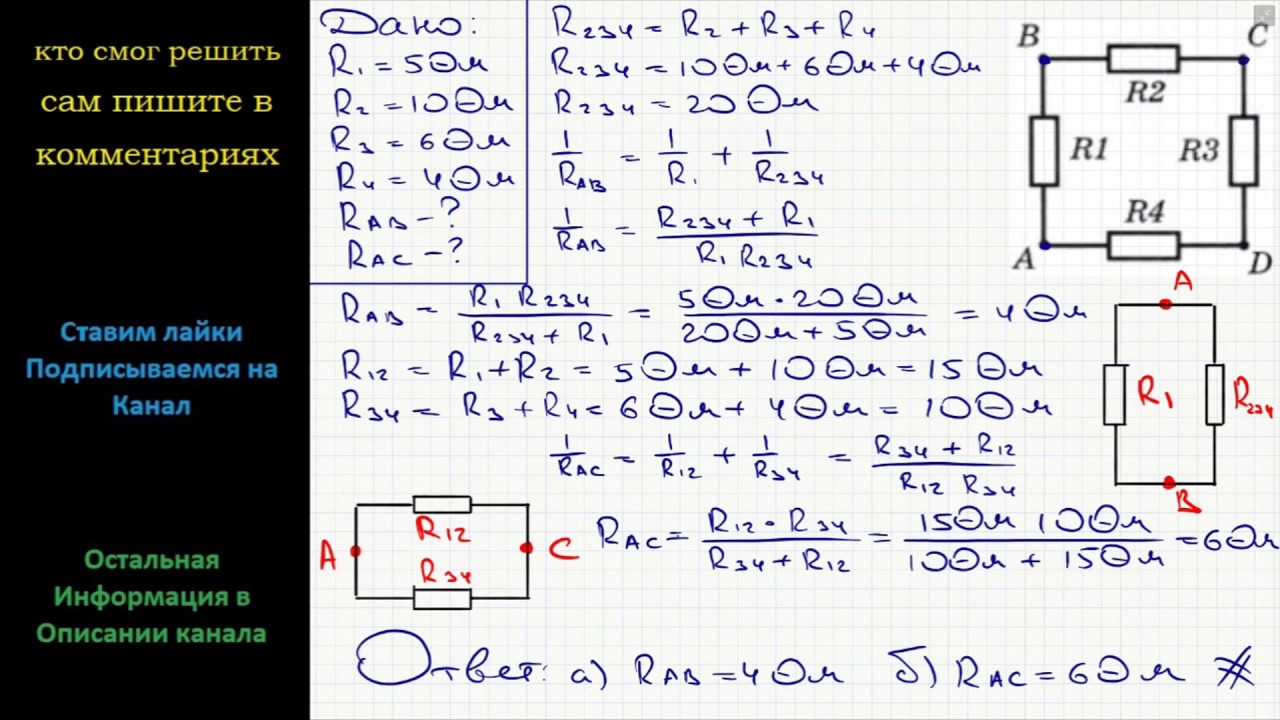 кто смог решить
сам пишите в
комментариях
Ставим лайки
Подписываемся на
Канал
Остальная
Информация в
Описании канала
Дано:
R₁ = 5 Ом
R₂ = 10 Ом
R₃ = 6 Ом
R₄ = 4 Ом
R_AB - ?
R_AC - ?
R₂₃₄ = R₂ + R₃ + R₄
R₂₃₄ = 10 Ом + 6 Ом + 4 Ом
R₂₃₄ = 20 Ом
1/R_AB = 1/R₁ + 1/R₂₃₄
1/R_AB = (R₂₃₄ + R₁)/(R₁ R₂₃₄)
B
C
R2
R1
R3
R4
A
D
R_AB = (R₁ R₂₃₄)/(R₂₃₄ + R₁) = (5 Ом · 20 Ом)/(20 Ом + 5 Ом) = 4 Ом
R₁₂ = R₁ + R₂ = 5 Ом + 10 Ом = 15 Ом
R₃₄ = R₃ + R₄ = 6 Ом + 4 Ом = 10 Ом
1/R_AC = 1/R₁₂ + 1/R₃₄ = (R₃₄ + R₁₂)/(R₁₂ R₃₄)
A
R₁
R₂₃₄
B
A
R₁₂
R₃₄
C
R_AC = (R₁₂ · R₃₄)/(R₃₄ + R₁₂) = (15 Ом 10 Ом)/(10 Ом + 15 Ом) = 6 Ом
Ответ: а) R_AB = 4 Ом б) R_AC = 6 Ом